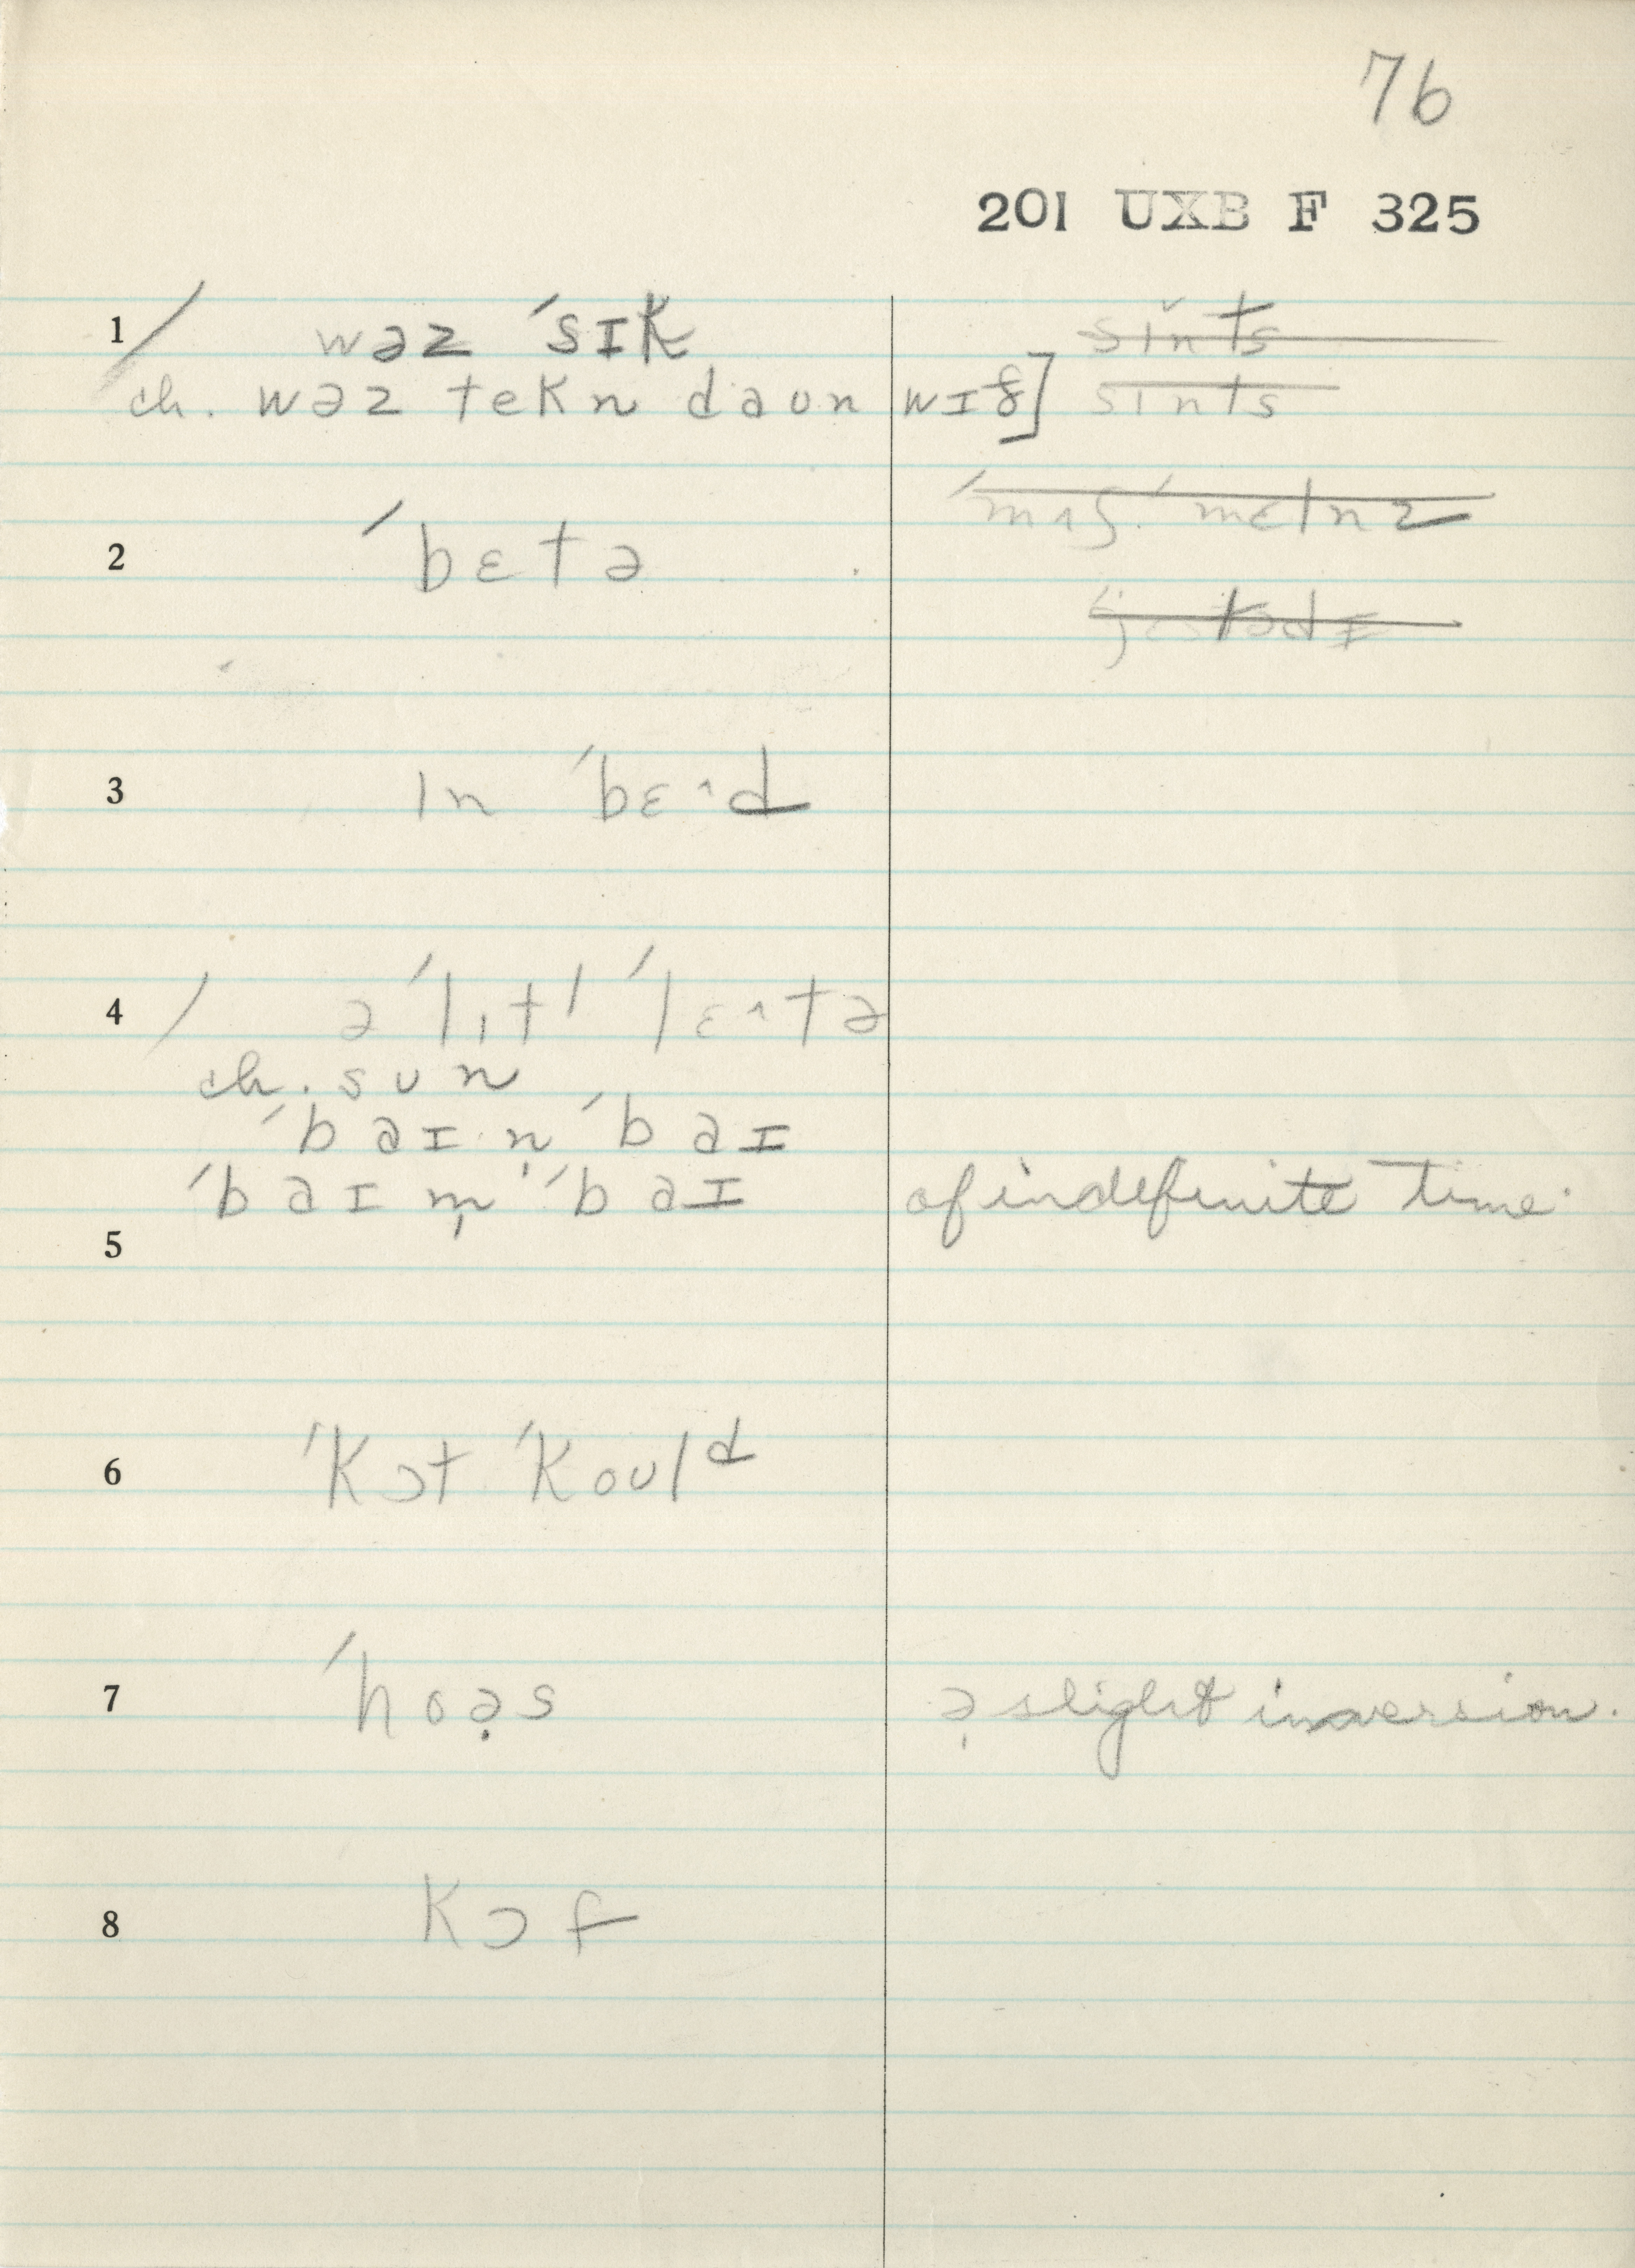 76
201 UXB F 325
1 / wəz ˈsɪk
sints
ch. wəz tekn daʊn wɪð] sints
2 ˈbɛtə
3 ɪn ˈbɛ^d
4 / ə ˈlɪtl ˈlɛ^tə
ch. sun
ˈbaɪ n̩ ˈbaɪ
ˈbaɪ m̩ ˈbaɪ of indefinite time.
5
6 ˈkɔt ˈkoʊld
7 ˈhoə̣s ə̣ slight inversion.
8 kɔf